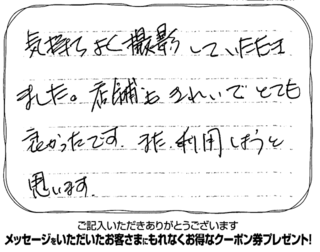 気持ちよく撮影していただき
ました。店舗もきれいでとても
良かったです。また、利用しようと
思います。
ご記入いただきありがとうございます
メッセージをいただいたお客さまにもれなくお得なクーポン券プレゼント!